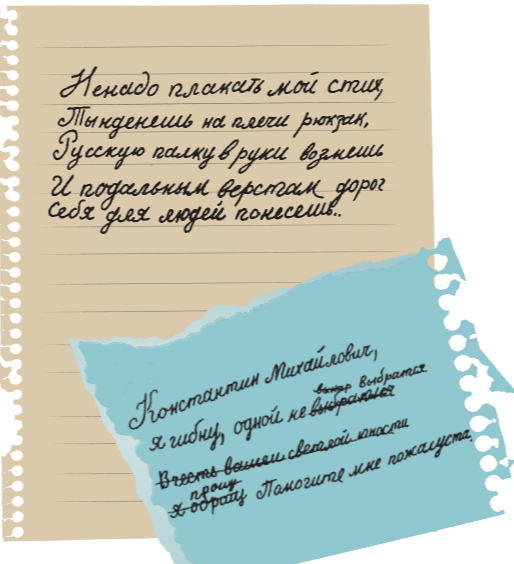 Ненадо плакать мой стих,
Тынденешь на плечи рюкзак,
Русскую палку в руки возмешь
И подальным верстам дорог
Себя для людей понесешь..
Константин Михайлович,
я гибну, одной не выбраться выбраться
В честь вашей светлой юности
прошу
я обращ Помогите мне пожалуста